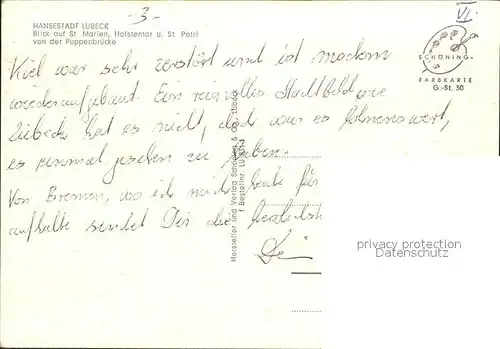 -3-
VI
HANSESTADT LÜBECK
Blick auf St. Marien, Holstentor u. St. Petri
von der Puppenbrücke
SCHÖNING
FARBKARTE
G.-St. 50
Kiel war sehr zerstört und ist modern
wiederaufgebaut. Ein reizvolles Stadtbild wie
Lübeck hat es nicht, doch war es lohnenswert,
es einmal gesehen zu haben.
Von Bremen, wo ich mich heute für
aufhalte sendet Dir die herzlichst
Dein
Hersteller und Verlag Schöning & Co., Lübeck
privacy protection
Datenschutz